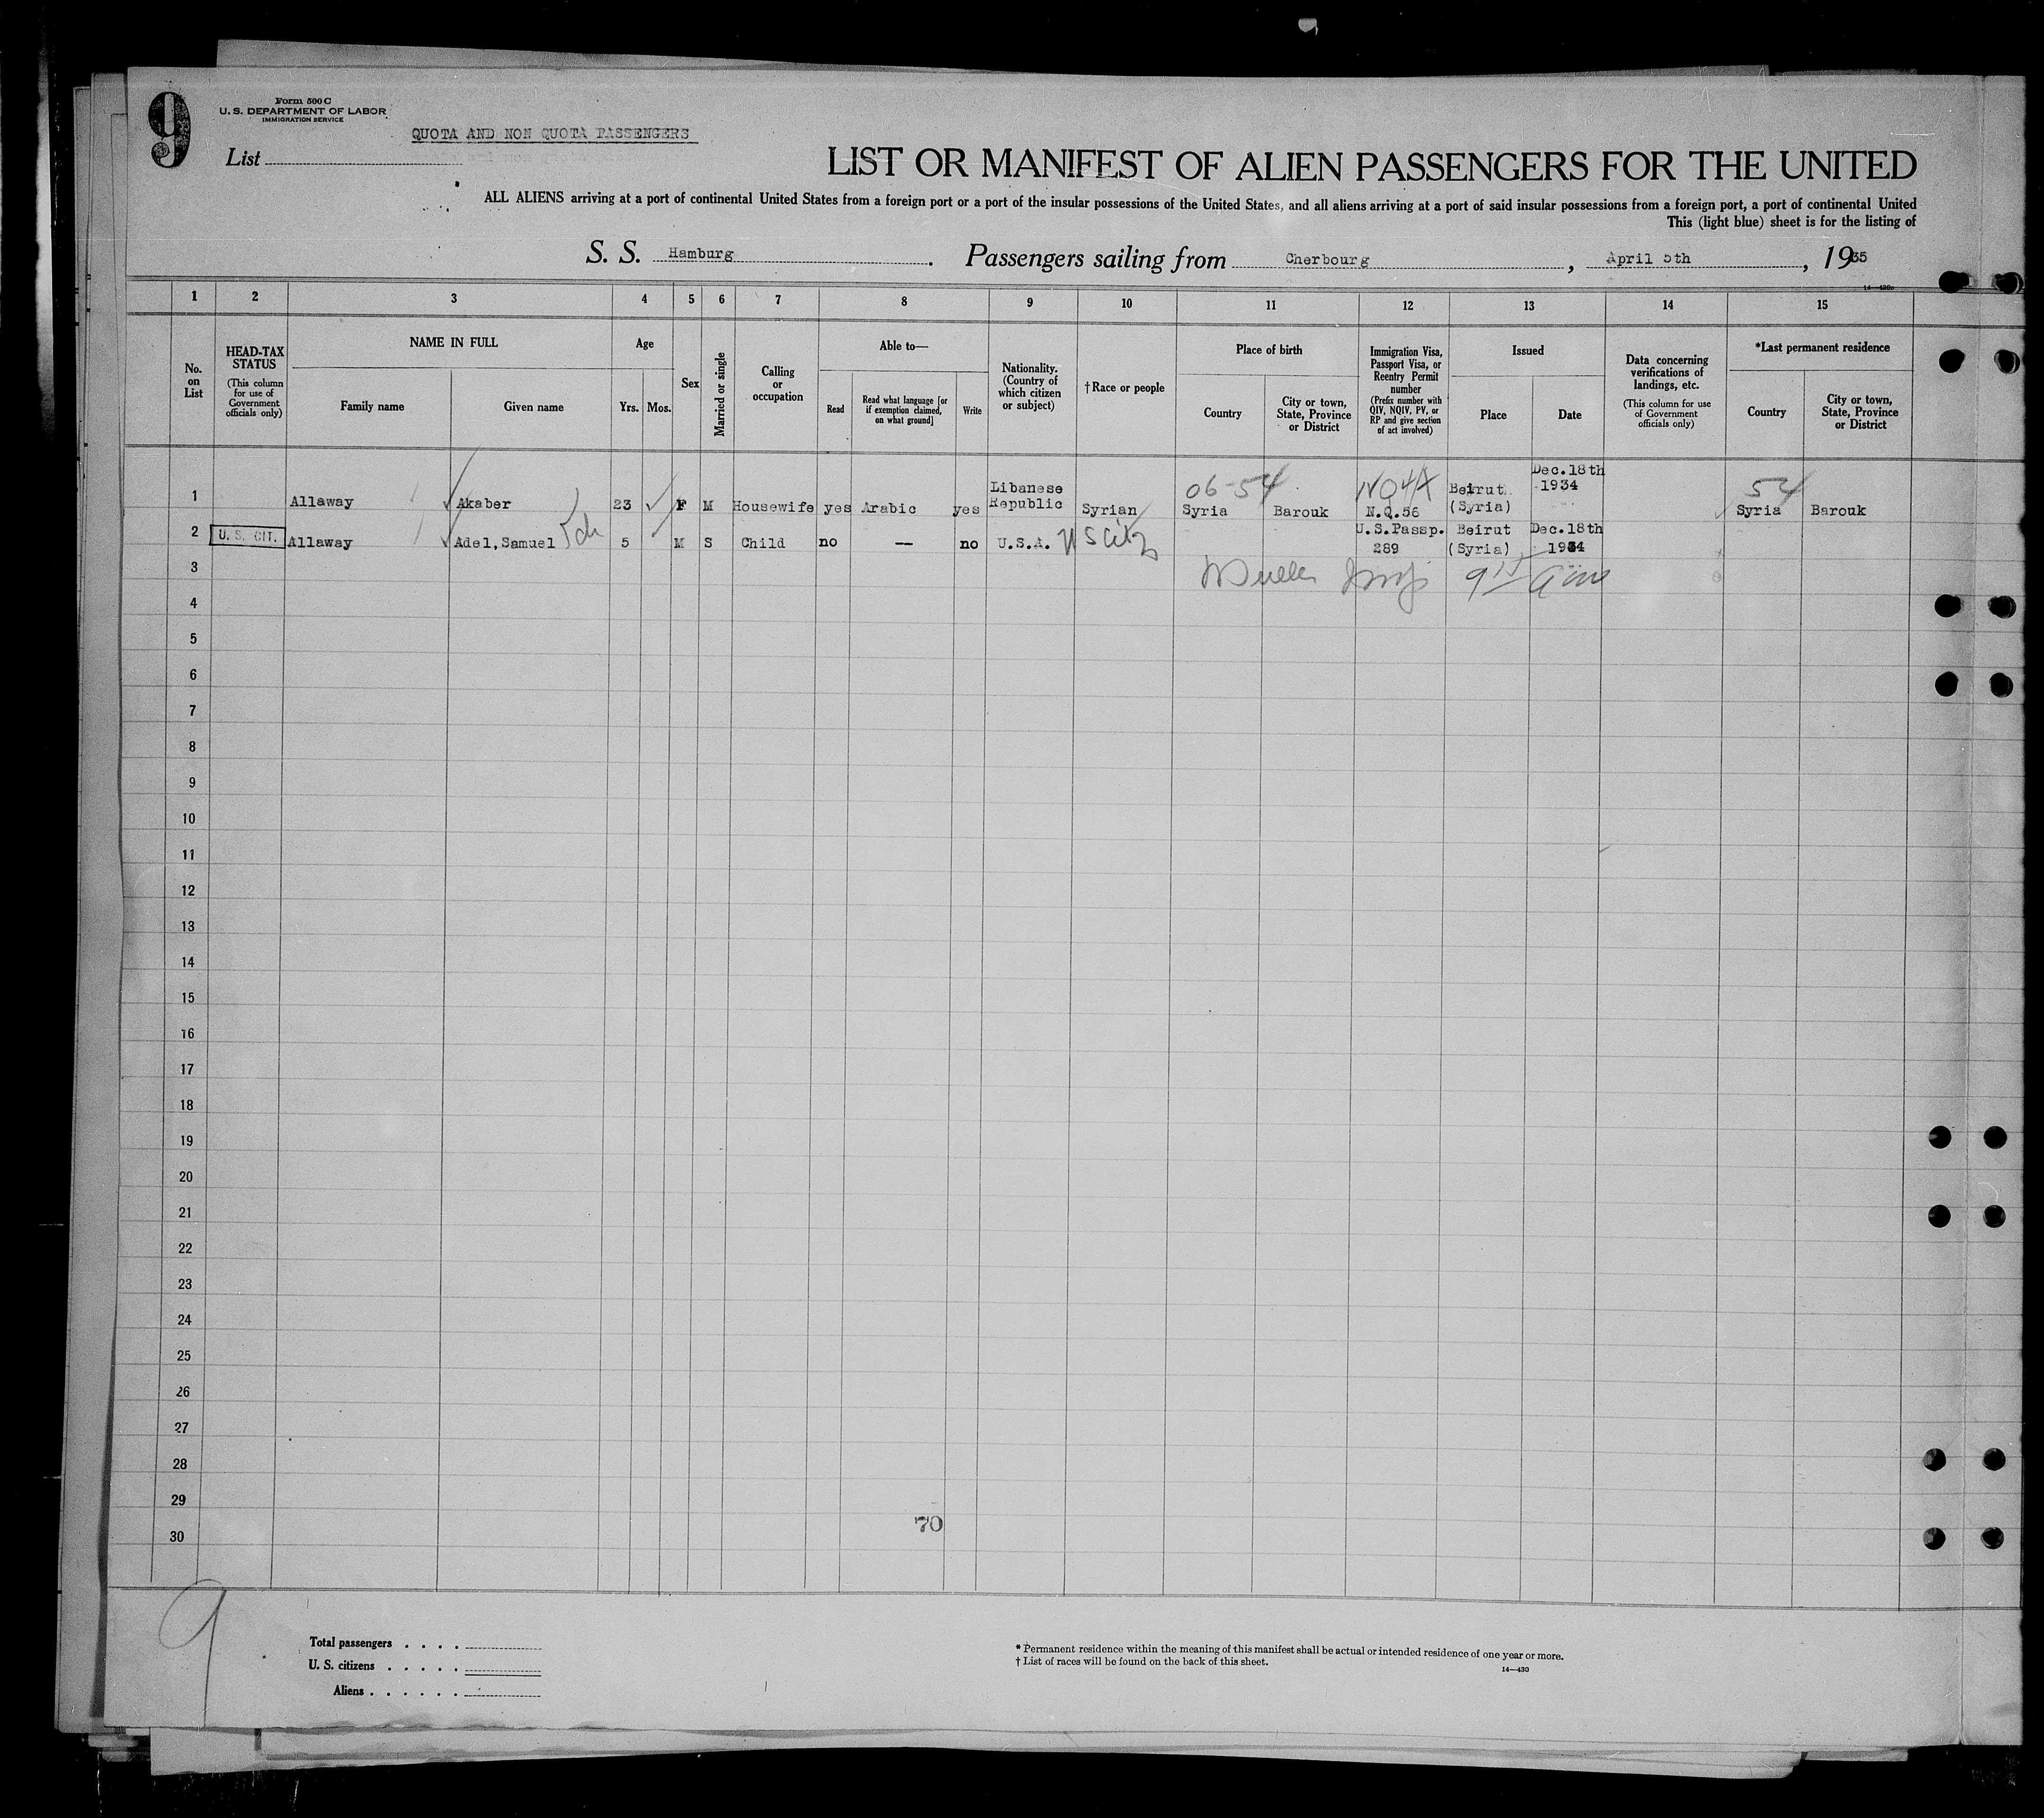 9
Form 500 C
U. S. DEPARTMENT OF LABOR
IMMIGRATION SERVICE
QUOTA AND NON QUOTA PASSENGERS
List
LIST OR MANIFEST OF ALIEN PASSENGERS FOR THE UNITED
ALL ALIENS arriving at a port of continental United States from a foreign port or a port of the insular possessions of the United States, and all aliens arriving at a port of said insular possessions from a foreign port, a port of continental United
This (light blue) sheet is for the listing of
S. S. Hamburg. Passengers sailing from Cherbourg, April 5th, 1935
1 2 3 4 5 6 7 8 9 10 11 12 13 14 15
No. on List
HEAD-TAX STATUS (This column for use of Government officials only)
NAME IN FULL
Family name Given name
Age
Yrs. Mos.
Sex
Married or single
Calling or occupation
Able to—
Read Read what language [or if exemption claimed, on what ground] Write
Nationality. (Country of which citizen or subject)
†Race or people
Place of birth
Country City or town, State, Province or District
Immigration Visa, Passport Visa, or Reentry Permit number (Prefix number with QIV, NQIV, PV, or RP and give section of act involved)
Issued
Place Date
Data concerning verifications of landings, etc. (This column for use of Government officials only)
*Last permanent residence
Country City or town, State, Province or District
06-54 NQ4A 54
1 Allaway Akaber 23 F M Housewife yes Arabic yes Libanese Republic Syrian Syria Barouk N.Q.56 Beirut (Syria) Dec.18th 1934 Syria Barouk
2 U. S. CIT. Allaway Adel,Samuel 5 M S Child no — no U.S.A. US Citz U.S.Passp. 289 Beirut (Syria) Dec.18th 1934
3
4
5
6
7
8
9
10
11
12
13
14
15
16
17
18
19
20
21
22
23
24
25
26
27
28
29
70
30
9
Total passengers . . . .
U. S. citizens . . . . .
Aliens . . . . . .
* Permanent residence within the meaning of this manifest shall be actual or intended residence of one year or more.
† List of races will be found on the back of this sheet.
14—430